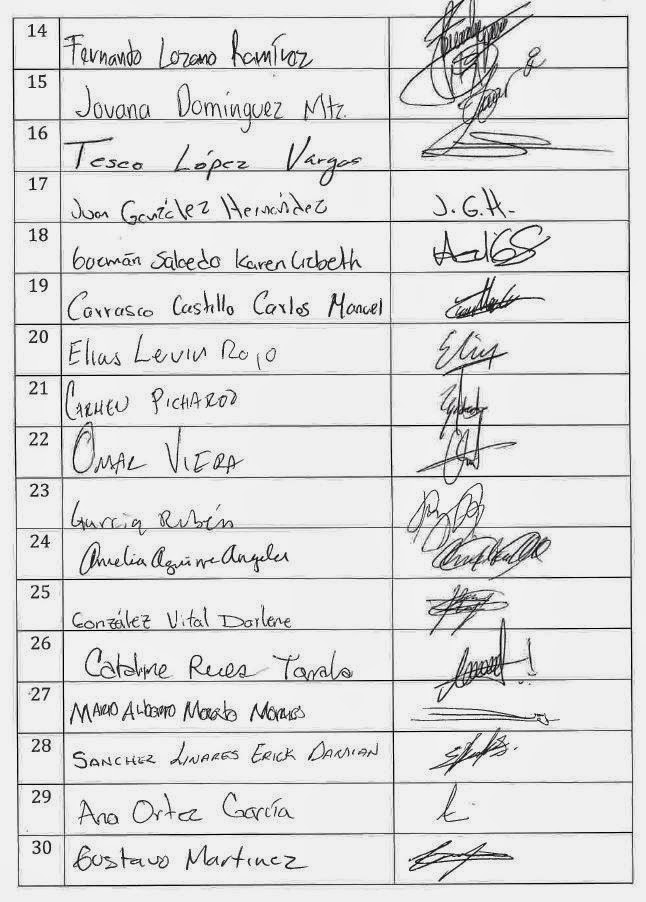 14 Fernando Lozano Ramírez
15 Jovana Domínguez Mtz.
16 Teseo López Vargas
17 Juan González Hernández J.G.H.
18 Guzmán Salcedo Karen Lizbeth
19 Carrasco Castillo Carlos Manuel
20 Elias Levin Rojo
21 Carmen Pichardo
22 Omar Viera
23 García Rubén
24 Amelia Aguirre Angeles
25 González Vital Darlene
26 Reyes
27 Mario Alberto Morales
28 Sanchez Linares Erick Damian
29 Ana Ortez García
30 Gustavo Martinez